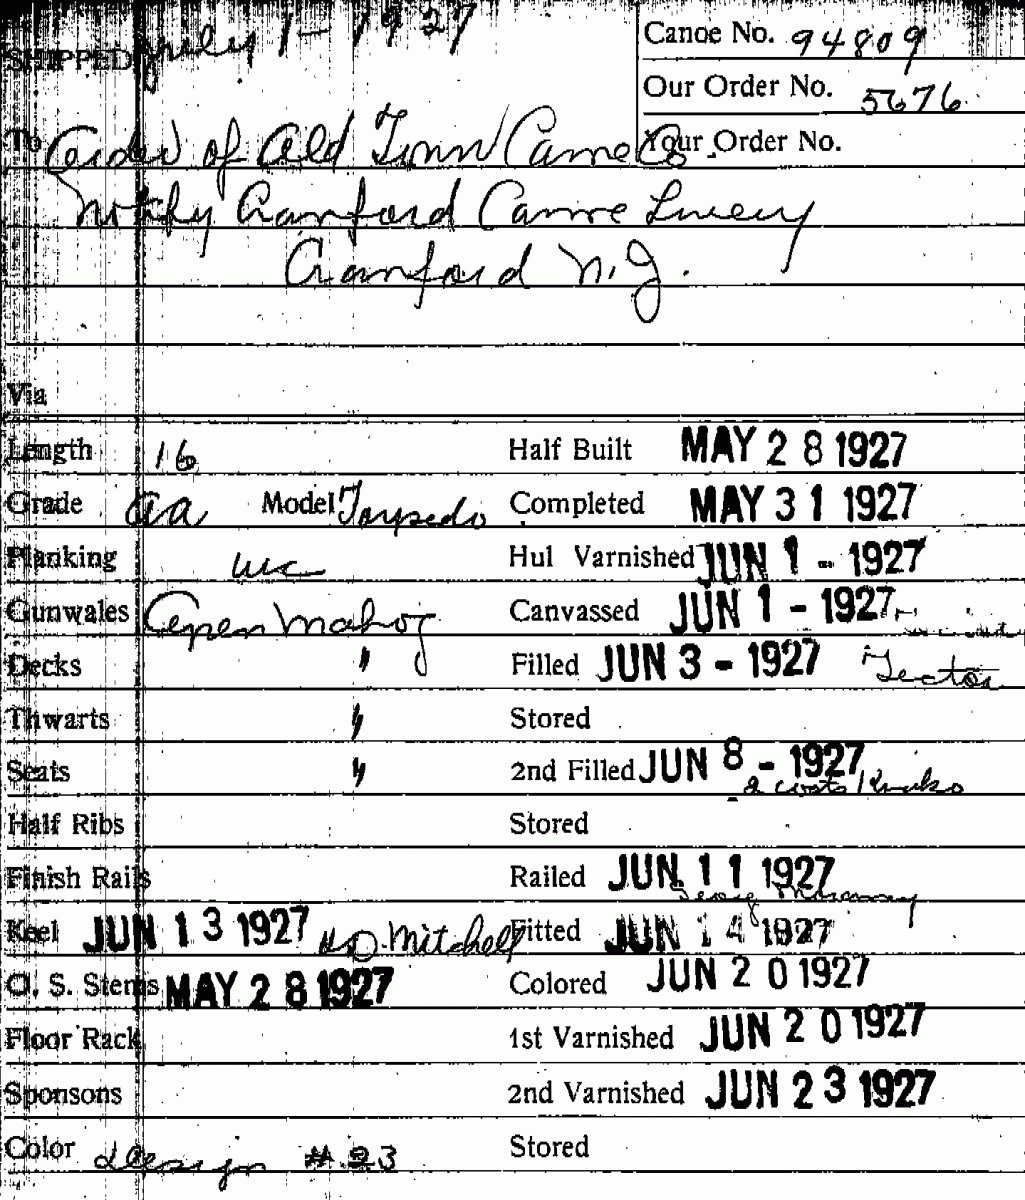 SHIPPED July 1 - 1927
Canoe No. 94809
Our Order No. 5676
To Order of Old Town Canoe Co.
Your Order No.
Notify Cranford Canoe Livery
Cranford N.J.
Via
Length 16 Half Built MAY 28 1927
Grade AA Model Torpedo Completed MAY 31 1927
Planking WC Hul Varnished JUN 1 - 1927
Gunwales Open Mahog Canvassed JUN 1 - 1927
Decks " Filled JUN 3 - 1927
Thwarts " Stored
Seats " 2nd Filled JUN 8 - 1927
2 coats
Half Ribs Stored
Finish Rails Railed JUN 11 1927
Keel JUN 13 1927 H.D. Mitchell Fitted JUN 14 1927
O. S. Stems MAY 28 1927 Colored JUN 20 1927
Floor Rack 1st Varnished JUN 20 1927
Sponsons 2nd Varnished JUN 23 1927
Color Design # 23 Stored